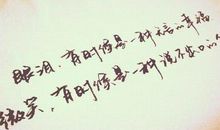 眼泪，有时候是一种无言的幸福
微笑，有时候是一种说不出口的